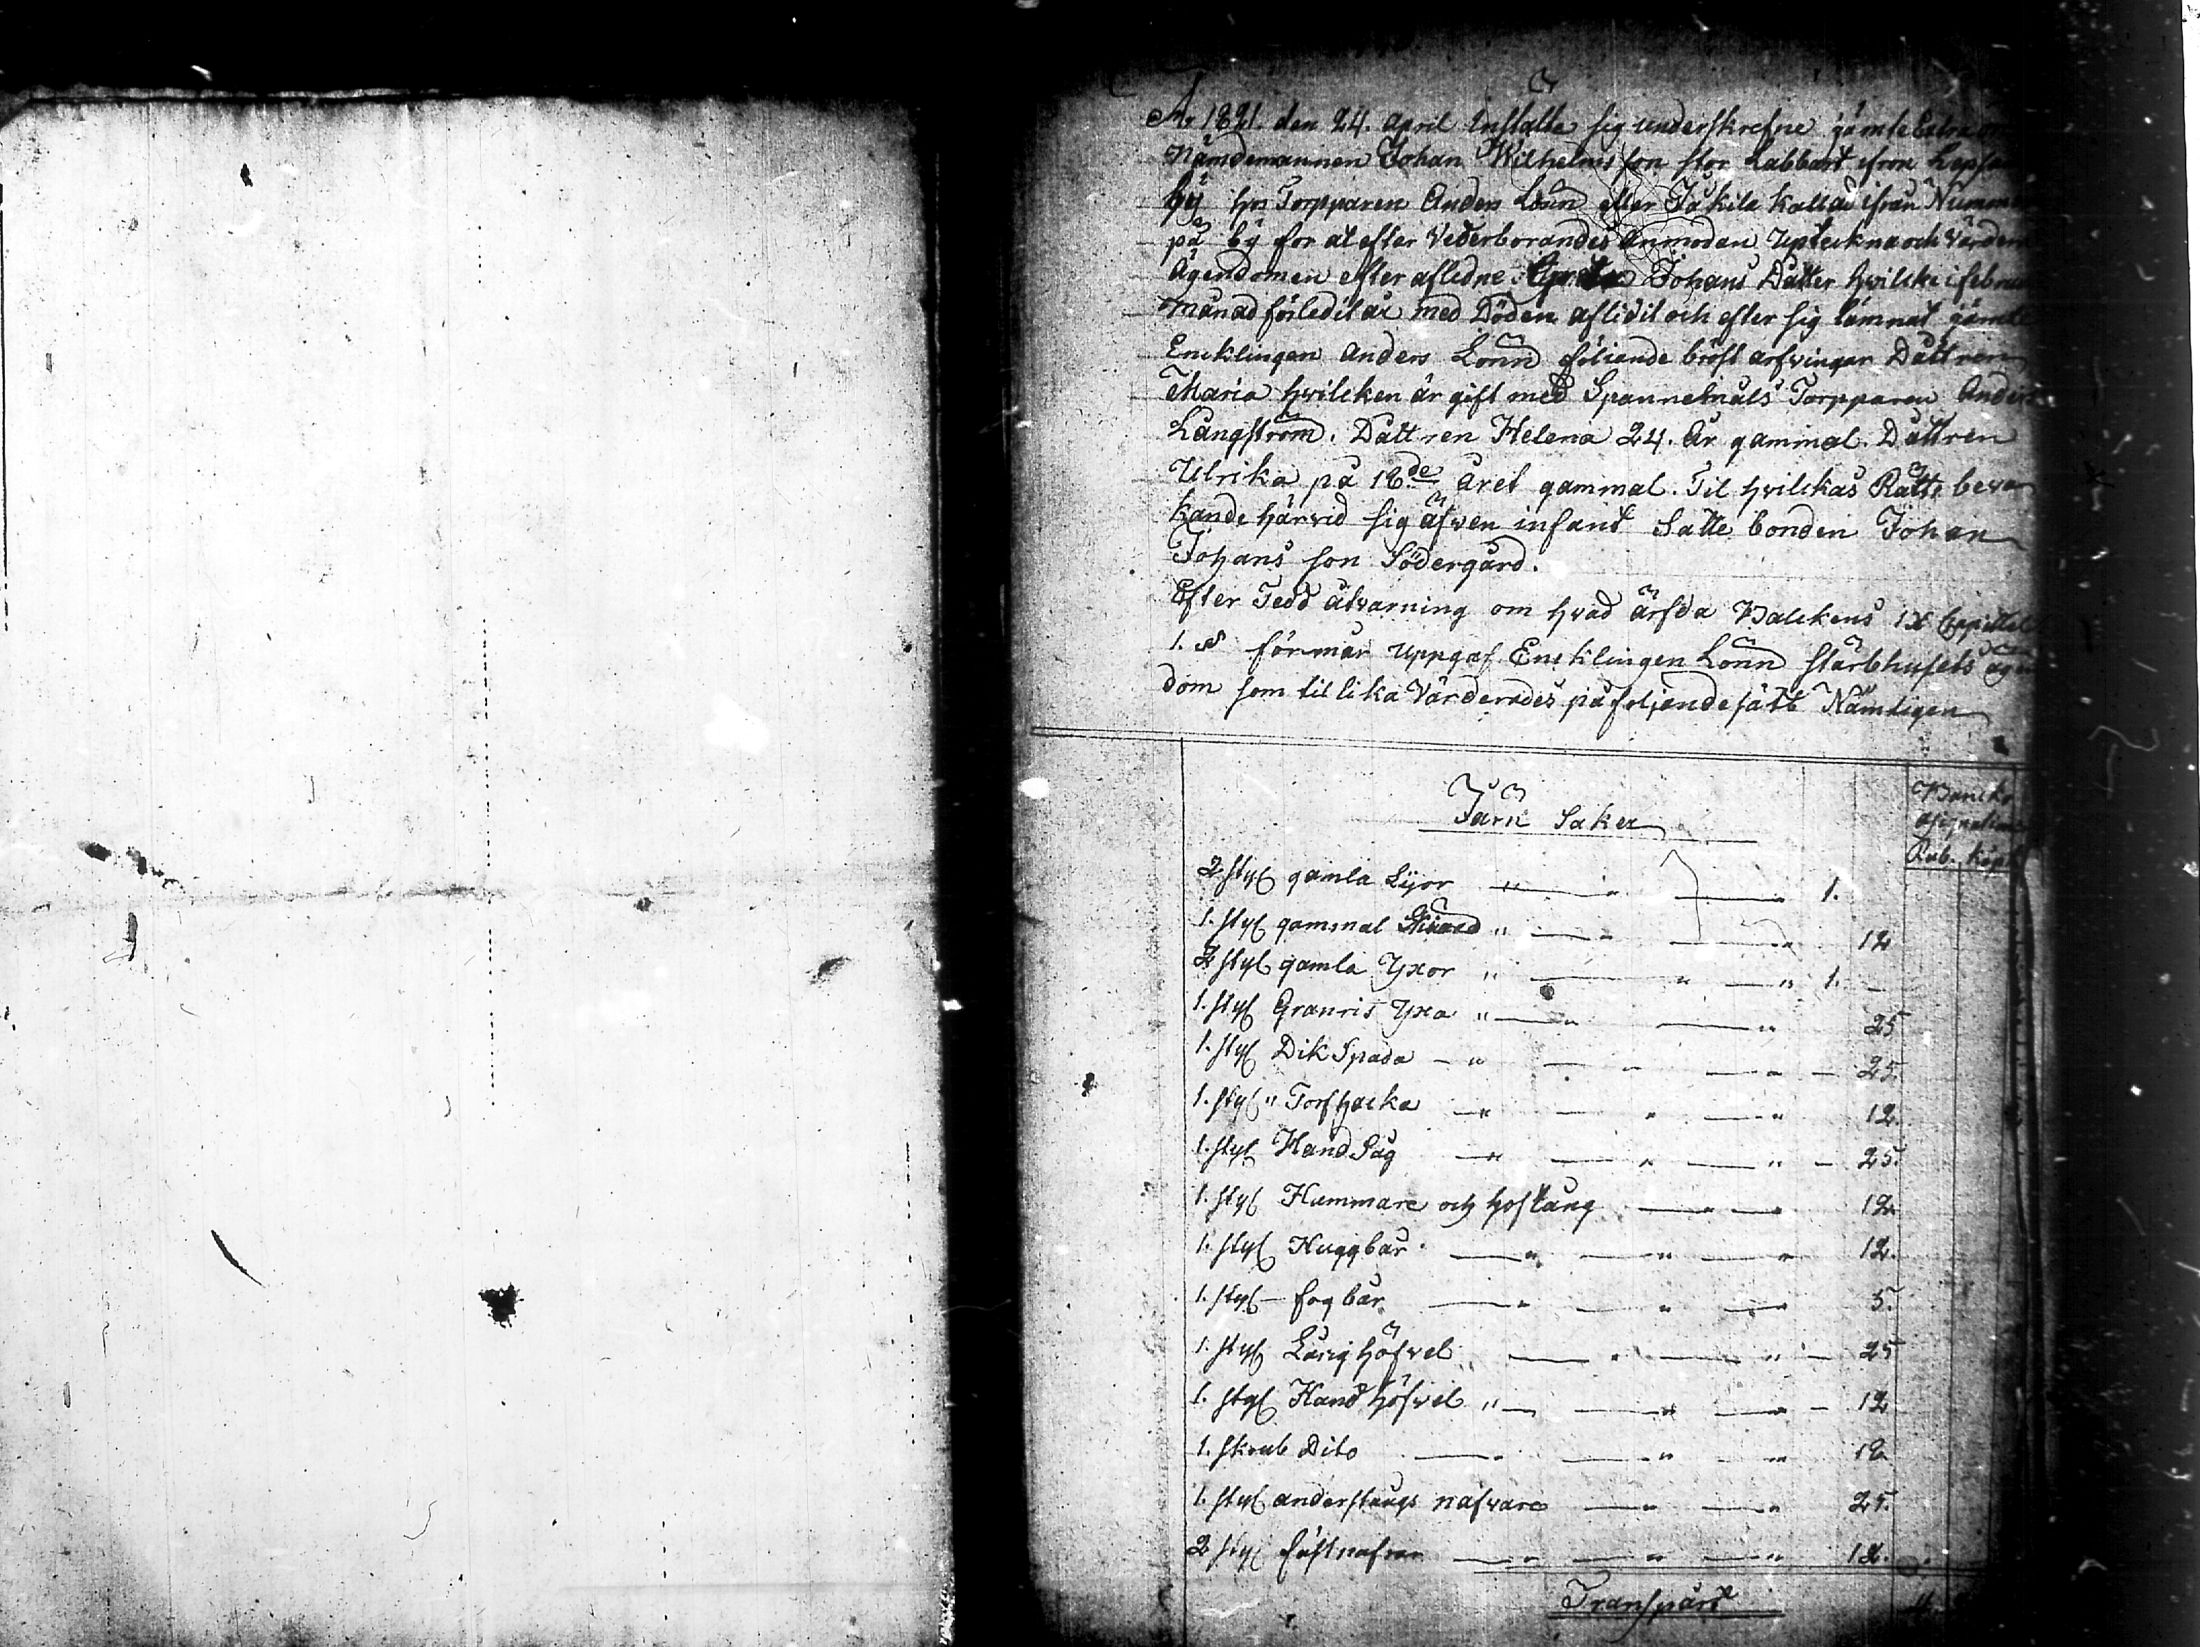 År 1821. den 24. April Instalte sig underskrefne jämte Extra
Nämdemannen Johan Wilhelms son stor Labbart ifrån
by hos Torpparen Anders Lönn eller Jakila kallad ifrån Numm
på by för at efter Vederborandes Anmodan Upteckna och Värdera
Ägendomen efter afledne Johans Dåtter hvilcke i februa
månad förledit år med Döden aflidit och efter sig lämnat jämte
Encklingen Anders Lönn föliande bröst arfvingar Dåttren
Maria hvilcken är gift med Spannetnäls Torpparen Anders
Långström. Dåttren Helena 24. År gammal. Dåttren
Ulrika på 18de Året gammal. Til hvilckas Rätts beva
kande härvid sig äfwen infant Satte bonden Johan
Johans son Södergård.
Efter Tedd åtvarning om hvad ärfda Balckens IX Cappittel
1. § förmår uppgaf Encklingen Lönn stärbhusets ägen
dom som til lika Värderades på följende sätt Nämligen
Järn Saker
Bancko
assignationer
Rub. Kop
2 styc gamla Lijor 1.
1. styc gammal 12
2 styc gamla Yxor 1.
1. styc Granris Yxa 25
1. styc Dik Spada 25.
1. styc Torfhacka 12.
1. styc Hand Såg 25.
1. styc Hammare och hoftång 12.
1. styc Huggbår 12.
1. styc fogbår 5.
1. styc Lång höfvel 25
1. styc Hand höfvel 12
1. skrub Dito 12
1. styc anderstangs nafvare 25.
2 styc fästnafvar 12.
Transpårt 4.